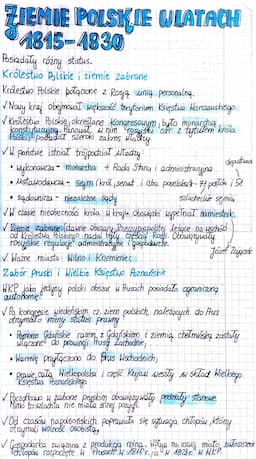 ZIEMIE POLSKIE W LATACH
1815-1830
Posiadały różny status.
Królestwo Polskie i ziemie zabrane
Królestwo Polskie połączone z Rosją unią personalną.
✓ Nowy kraj obejmował większość terytorium Księstwa Warszawskiego.
✓ Królestwo Polskie, określane Kongresowym, było monarchią
konstytucyjną. Panował w nim rosyjski car z tytułem króla
Polski, posiadał szeroki zakres władzy.
✓ W państwie istniał trójpodział władzy:
deputowani
• wykonawcza - monarcha + Rada Stanu i administracyjna
• ustawodawcza - sejm (król, senat i izba poselska - 77 posłów i 51
• sądownicza - niezależne sądy
✓ W czasie nieobecności króla w kraju obowiązki wypełniał namiestnik
Józef Zajączek
✓ Ziemie zabrane (dawne obszary Rzeczypospolitej leżące na wschód
od Królestwa Polskiego) nadal były częścią Rosji. Obowiązywały
rosyjskie regulacje administracyjne i gospodarcze.
✓ Ważne miasta: Wilno i Krzemieniec
Zabór Pruski i Wielkie Księstwo Poznańskie
WKP jako jedyny polski obszar w Prusach posiadało ograniczoną
autonomię.
✓ Po kongresie wiedeńskim cz. ziem polskich należących do Prus
otrzymało różny status prawny
• Pomorze Gdańskie razem z Gdańskiem i ziemią chełmińską zostały
włączone do prowincji Prusy Zachodnie,
• Warmię przyłączono do Prus Wschodnich,
• prawie cała Wielkopolska i część Kujaw weszły w skład Wielkiego
Księstwa Poznańskiego
✓ Początkowo w zaborze pruskim obowiązywały podziały stanowe.
Mimo to szlachta nie miała silnej pozycji.
✓ Od czasów napoleońskich poprawiła się sytuacja chłopów, którzy
otrzymali wolność osobistą.
✓ Gospodarka związana z produkcją rolną.
chłopów rozpoczęte w Prusach w 1811 r., a w 1823 r. w WKP.